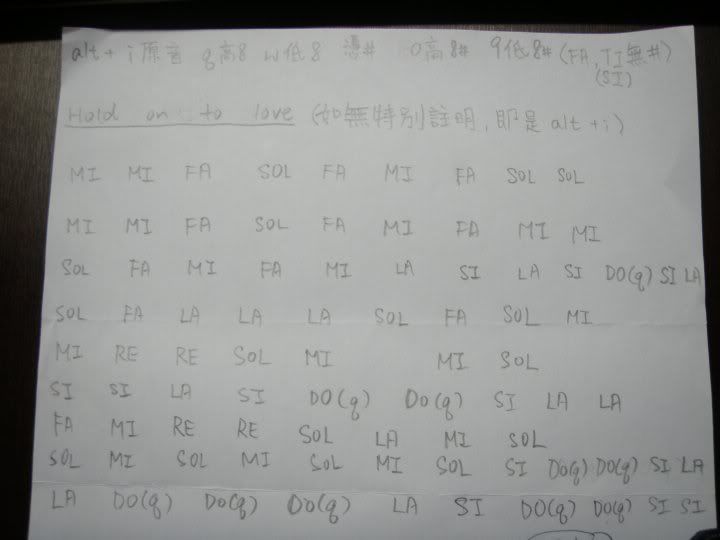 alt + i 原音 q高8 w低8 # 0高8# 9低8# (FA, TI無#)
(SI)
Hold on to love (如無特別註明, 即是 alt + i)
MI MI FA SOL FA MI FA SOL SOL
MI MI FA SOL FA MI FA MI MI
SOL FA MI FA MI LA SI LA SI DO(q) SI LA
SOL FA LA LA LA SOL FA SOL MI
MI RE RE SOL MI MI SOL
SI SI LA SI DO(q) DO(q) SI LA LA
FA MI RE RE SOL LA MI SOL
SOL MI SOL MI SOL MI SOL SI DO(q) DO(q) SI LA
LA DO(q) DO(q) DO(q) LA SI DO(q) DO(q) SI SI